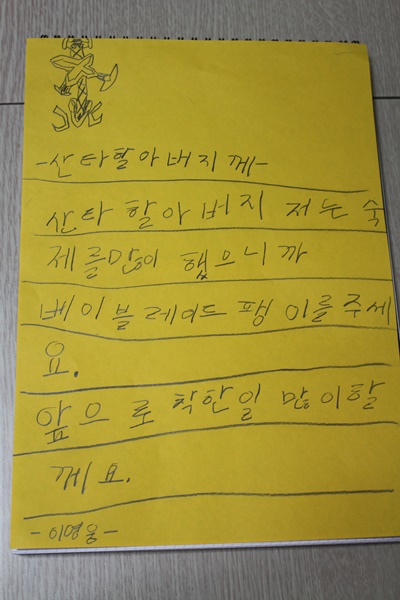 -산타할아버지께-
산타 할아버지 저는 숙
제를많이 했으니까
베이블레이드 팽이를주세
요.
앞으로 착한일 많이할
께요.
-이영웅-